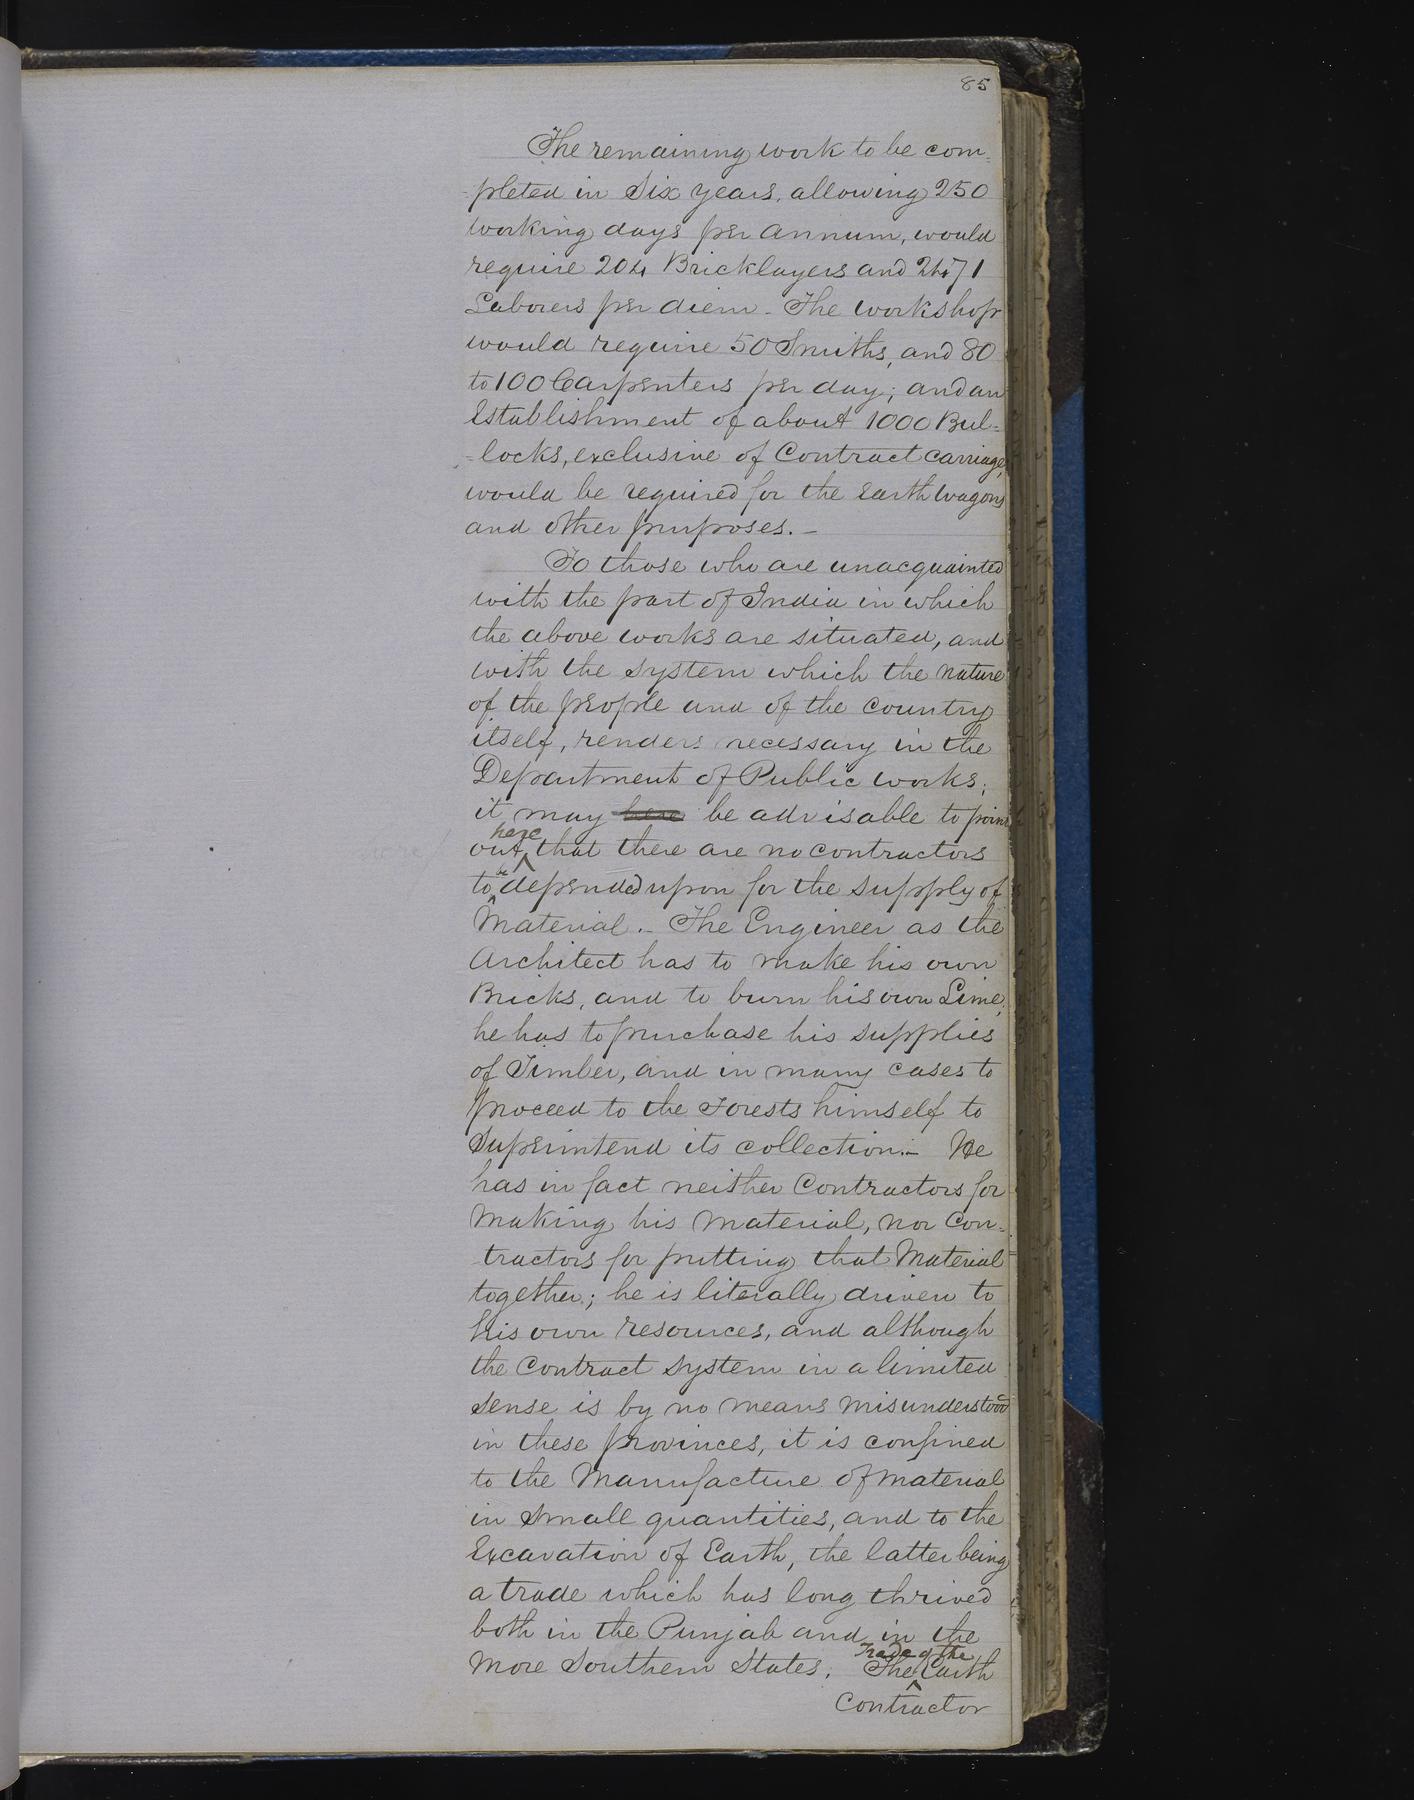 85
The remaining work to be com=
-pleted in Six years, allowing 250
working days per annum, would
require 204 Bricklayers and 2471
Laborers per diem - The workshop
would require 50 Smiths, and 80
to 100 Carpenters per day; and an
Establishment of about 1000 Bul=
=locks, exclusive of Contract carriage,
would be required for the Earth wagons
and other purposes. -
To those who are unacquainted
with the part of India in which
the above works are situated, and
with the system which the nature
of the people and of the country
itself, renders necessary in the
Department of Public works;
it may here be advisable to point
here
out, that there are no contractors
be
to depended upon for the supply of
Material. - The Engineer as the
Architect has to make his own
Bricks, and to burn his own Lime;
he has to purchase his supplies
of Timber, and in many cases to
proceed to the Forests himself to
Superintend its collection. - He
has in fact neither Contractors for
Making his Material, nor Con=
tractors for putting that Material
together; he is literally driven to
his own resources, and although
the Contract system in a limited
sense is by no means misunderstood
in these provinces, it is confined
to the Manufacture of material
in small quantities, and to the
Excavation of Earth, the latter being
a trade which has long thrived
both in the Punjab and in the
Trade of the
More Southern States. The Earth
Contractor